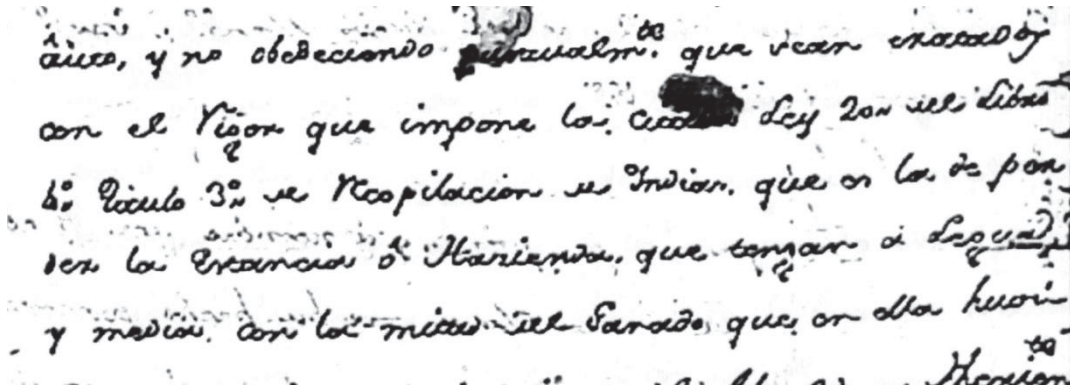 auto, y no obedeciendo puntualm.te que sean tratados
con el Rigor que impone la citada Ley 20,, del Libro
6,,º Titulo 3,,º de Recopilacion de Indias, que es la de per
der la Estancia ó Hazienda, que tengan á Legua,
y media, con la mitad del Ganado, que en ella huvie